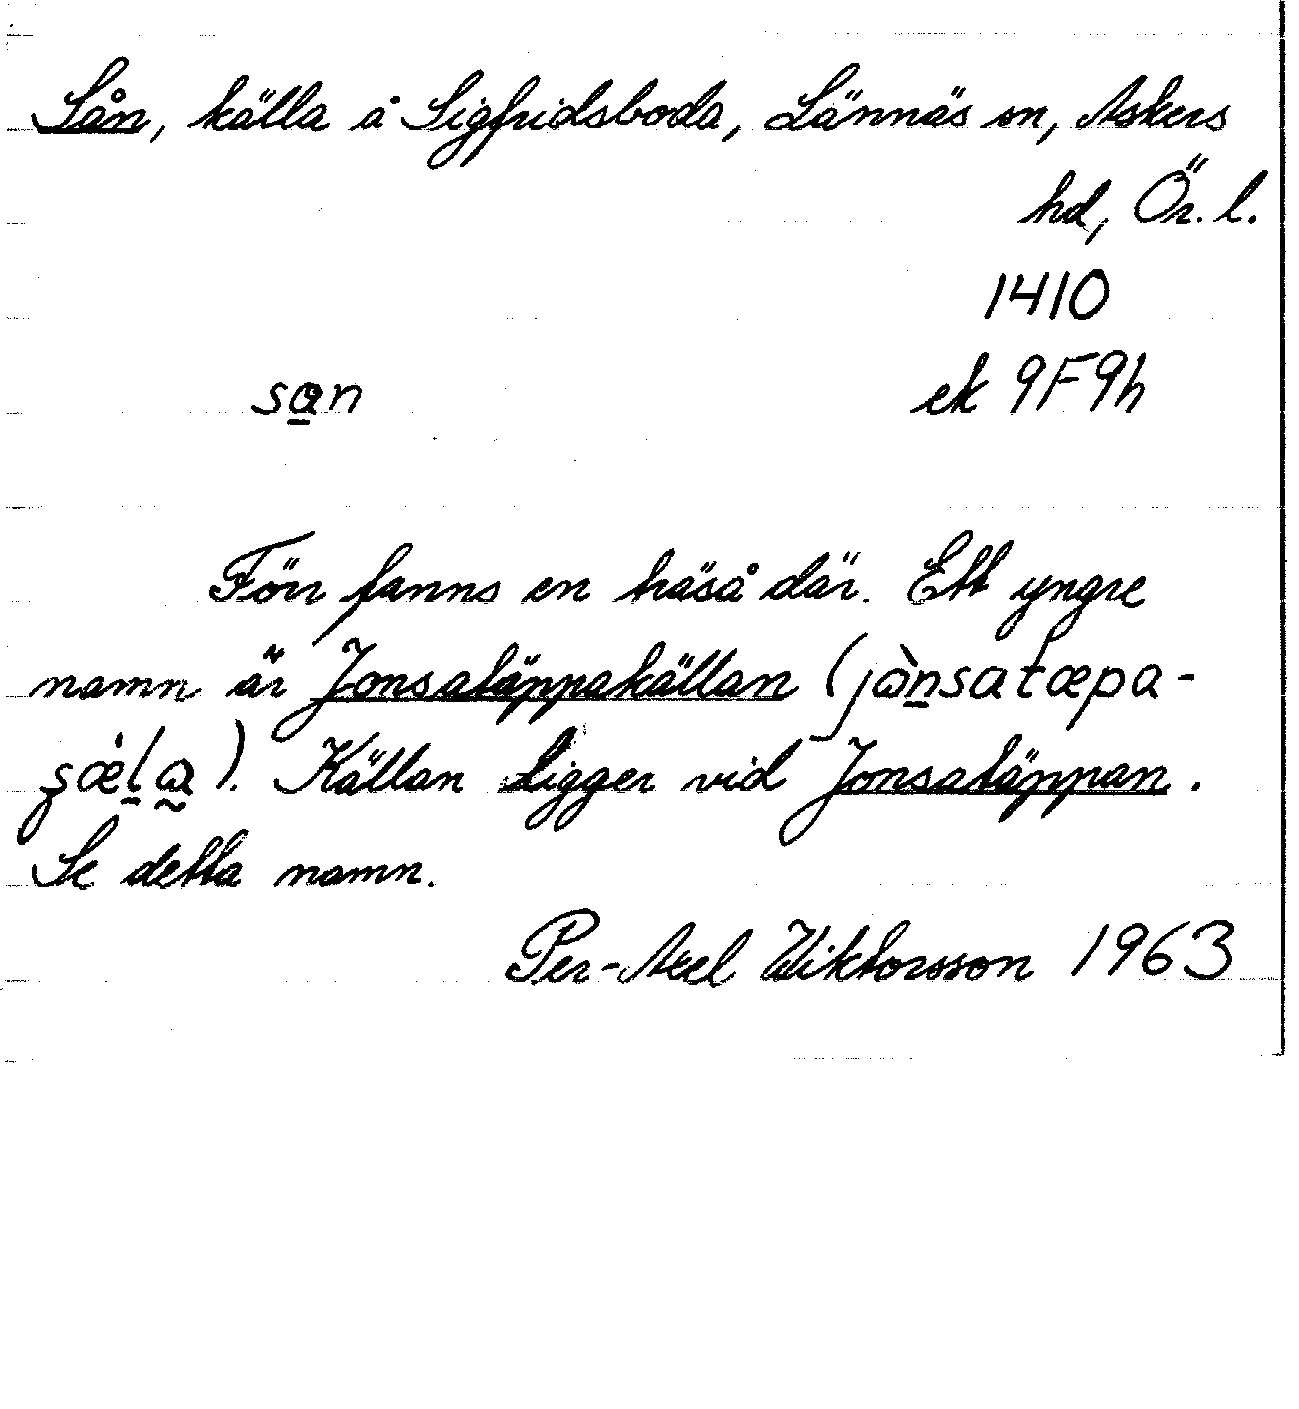 Sån, källa å Sigfridsboda, Lännäs sn, Askers
hd, Ör. l.
1410
san
ek 9F9h
Förr fanns en träså där. Ett yngre
namn är Jonsatäppakällan (jònsatæpa-
ʂǽla). Källan ligger vid Jonsatäppan.
Se detta namn.
Per-Axel Wiktorsson 1963